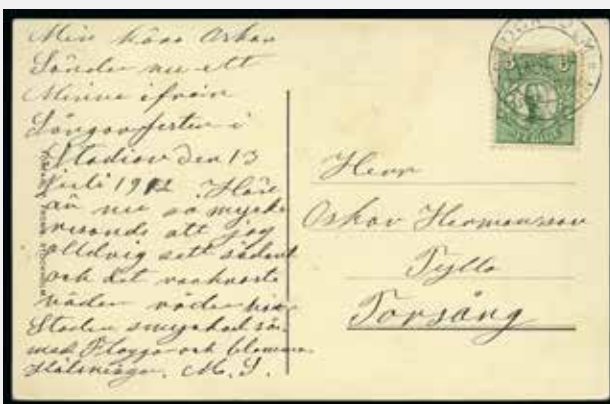 Min kära Oskar
Sänder nu ett
Minne ifrån
Sångarfesten i
Stadion Den 13
Juli 1912. Häre
är nu så mycke
resande att jag
alldrig sett sådant
och det vackraste
väder råder här
Staden smyckad
med Flaggor och blommor.
Hälsningar. M. S.
Herr
Oskar Hermansson
Tylla
Torsång
5 5
SVERIGE